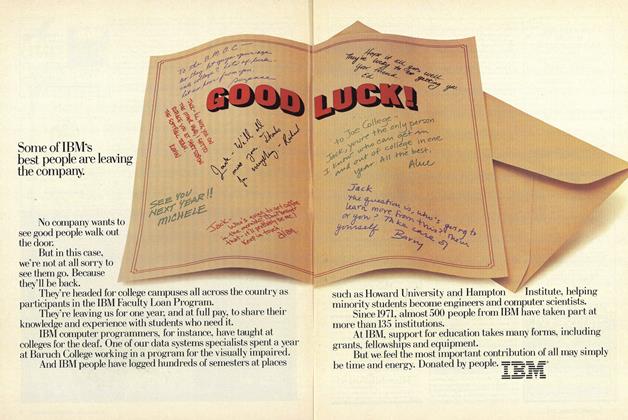 GOOD LUCK!
To the B.M.O.C.
Suzanne
Jack - We'll all
miss you. Thanks
for everything. Richard
SEE YOU
NEXT YEAR!!
MICHELE
Jack,
keep in touch
Jim
Hope it all goes well.
They're lucky to be getting you
Your friend
Ed
to Joe College
Jack, you're the only person
I know who can get in
and out of college in one
year. All the best,
Alice
Jack
The question is, who's going to
learn more from this? Them
or you? Take care of
yourself
Barry
Some of IBM's
best people are leaving
the company.
No company wants to
see good people walk out
the door.
But in this case,
we're not at all sorry to
see them go. Because
they'll be back.
They're headed for college campuses all across the country as
participants in the IBM Faculty Loan Program.
They're leaving us for one year, and at full pay, to share their
knowledge and experience with students who need it.
IBM computer programmers, for instance, have taught at
colleges for the deaf. One of our data systems specialists spent a year
at Baruch College working in a program for the visually impaired.
And IBM people have logged hundreds of semesters at places
such as Howard University and Hampton Institute, helping
minority students become engineers and computer scientists.
Since 1971, almost 500 people from IBM have taken part at
more than 135 institutions.
At IBM, support for education takes many forms, including
grants, fellowships and equipment.
But we feel the most important contribution of all may simply
be time and energy. Donated by people. IBM